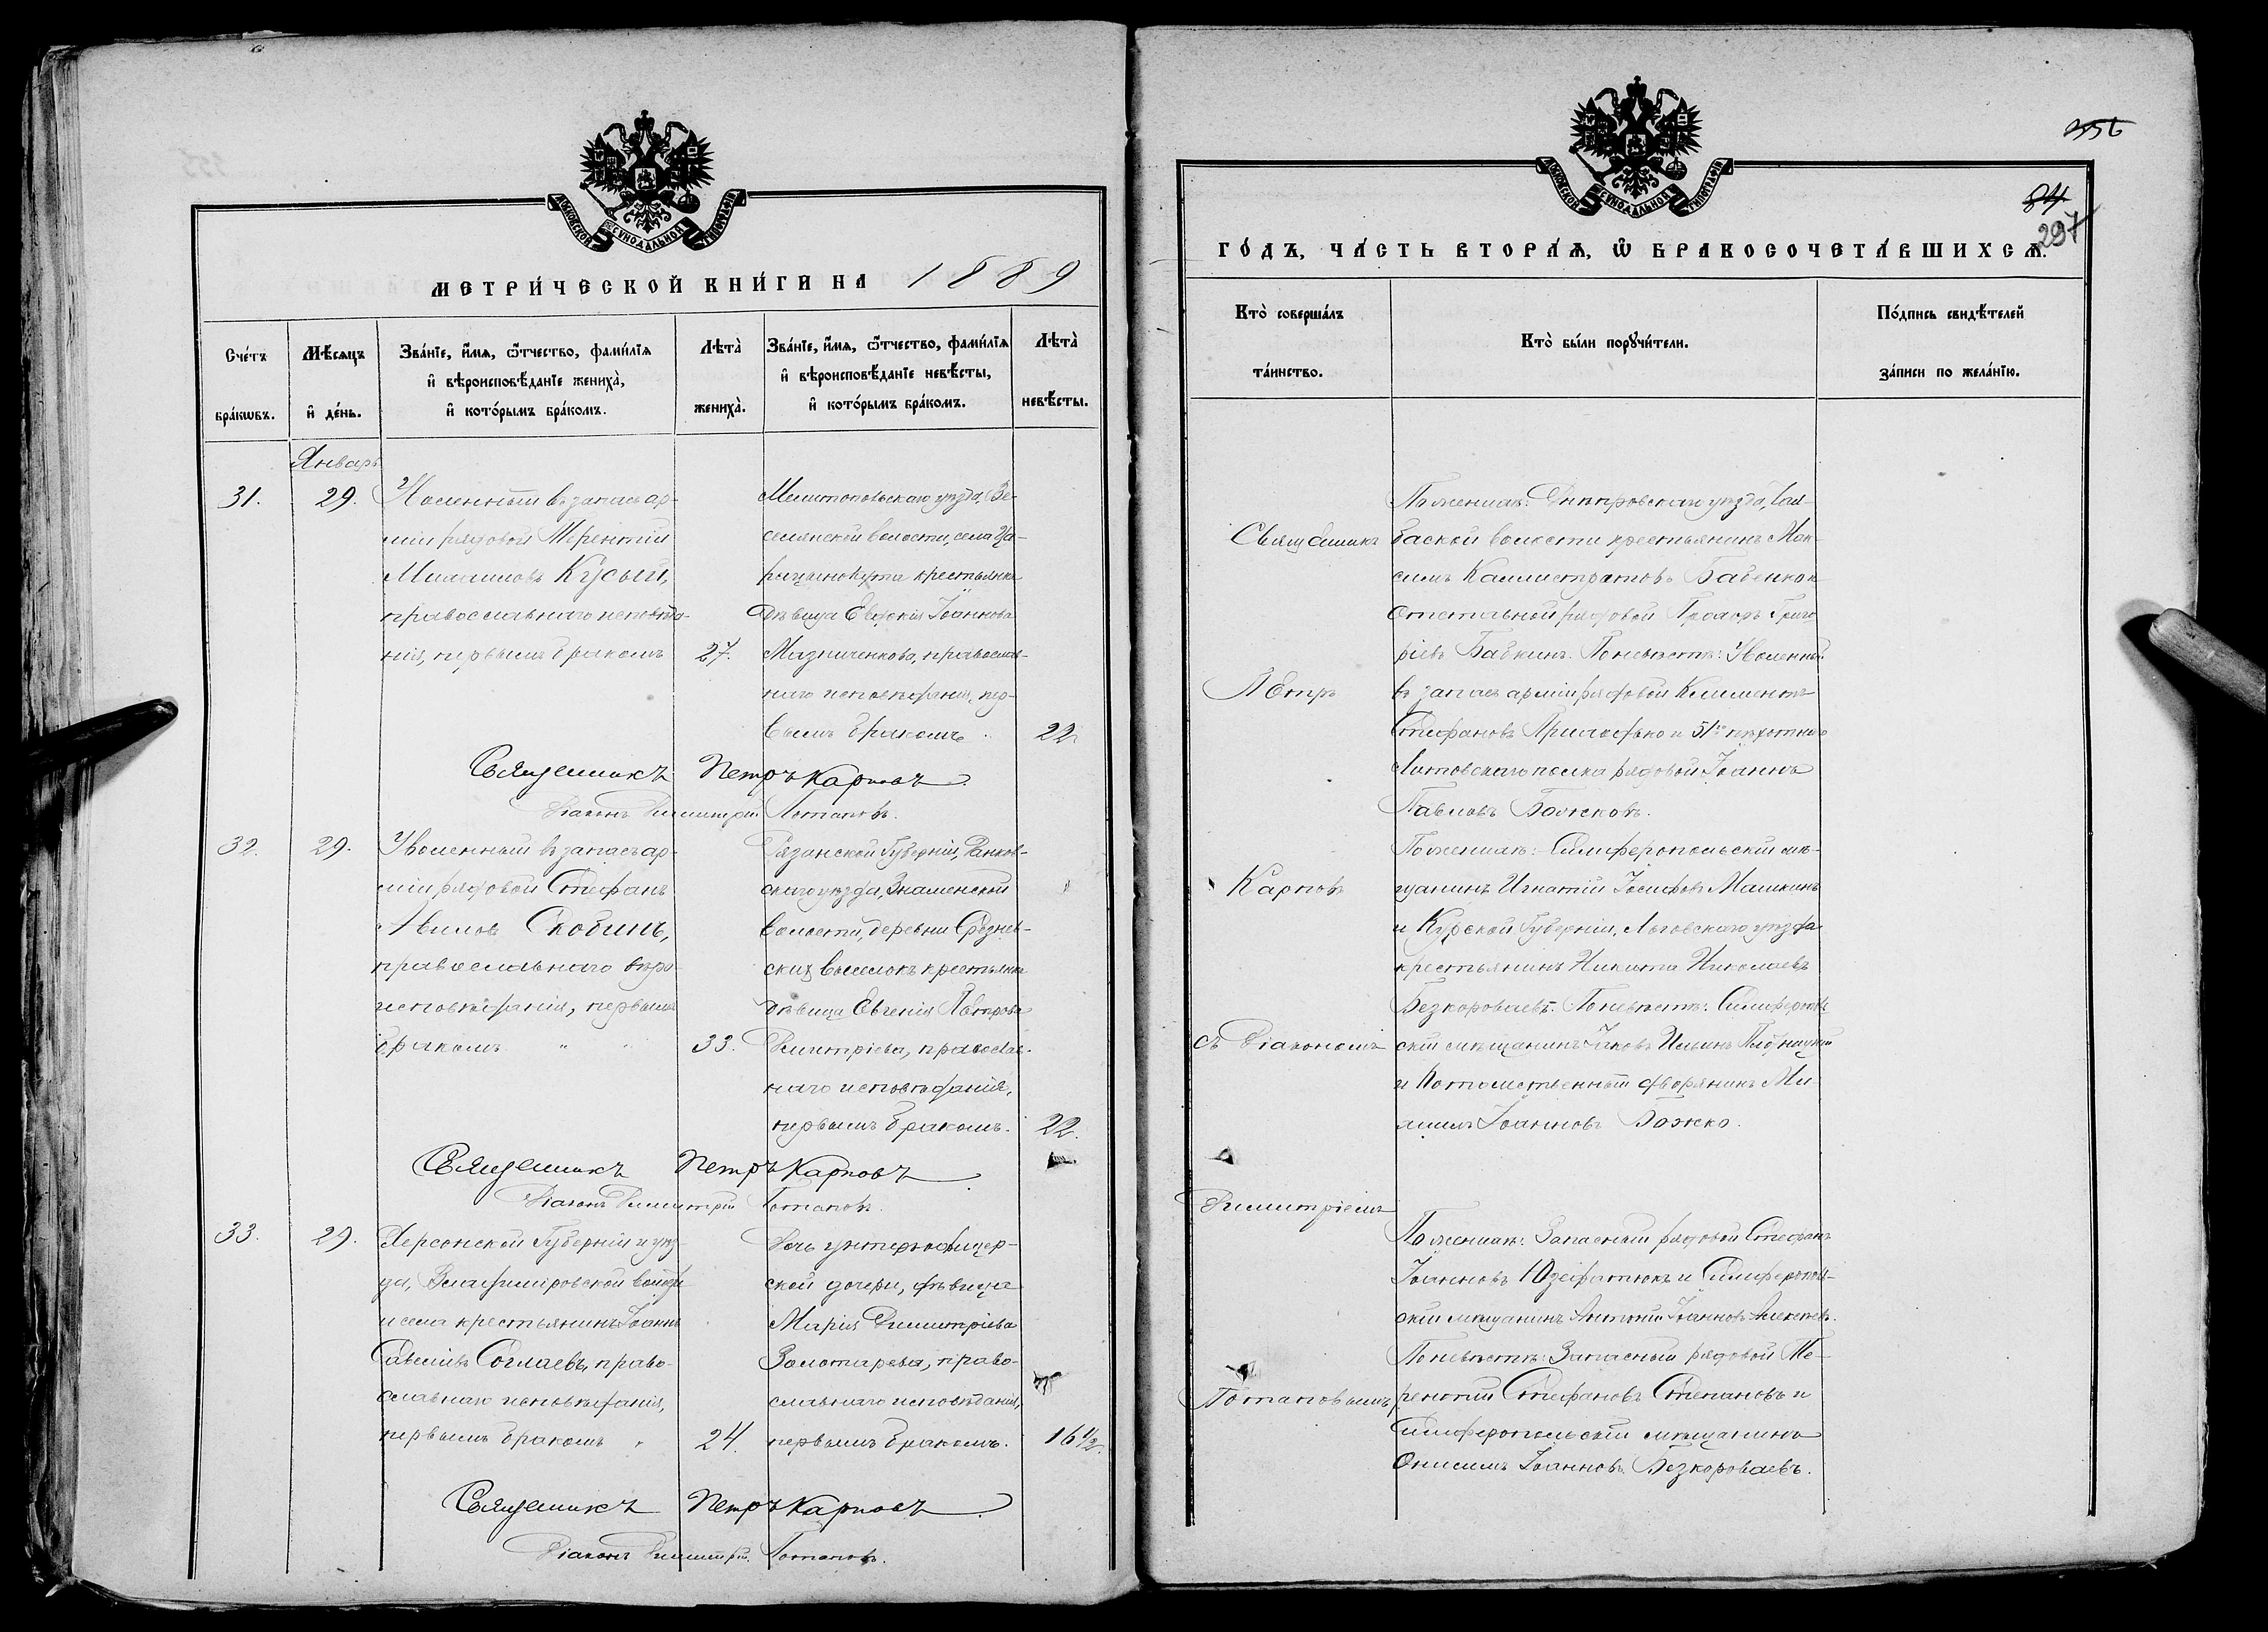 МОСКОВСКОЙ СѴНОДАЛЬНОЙ ТИПОГРАФІИ
МЕТРИ́ЧЕСКОЙ КНИ́ГИ НА 1889
Сче́тъ бра́кѡвъ.
Мѣ́сяцъ и҆ де́нь.
Зва́нїе, и҆́мѧ, ѻ҆́тчество, фами́лїѧ
и҆ вѣроисповѣ́данїе жениха̀,
и҆ кото́рымъ бра́комъ.
Лѣта̀ жениха̀.
Зва́нїе, и҆́мѧ, ѻ҆́тчество, фами́лїѧ
и҆ вѣроисповѣ́данїе невѣ́сты,
и҆ кото́рымъ бра́комъ.
Лѣта̀ невѣ́сты.
Январь
31. 29.
Уволенный въ запасъ ар-
міи рядовой Терентій
Кусый,
православнаго исповѣда-
нія, первымъ бракомъ 27.
Мелитопольскаго уѣзда, Ве-
селянской волости, села Ца-
рицынокута крестьянка
дѣвица Евдокія Іоаннова
Мазниченкова, православ-
наго исповѣданія, пер-
вымъ бракомъ. 22.
Священникъ Петръ Карповъ.
Діаконъ Димитрій Потаповъ.
32. 29.
Уволенный въ запасъ ар-
міи рядовой Стефанъ
Скобинъ,
православнаго вѣро-
исповѣданія, первымъ
бракомъ " " 33.
Рязанской Губерніи, Ранков-
скаго уѣзда, Знаменской
волости, деревни
скихъ выселокъ крестьянка
дѣвица Евгенія Петрова
Димитріева, православ-
наго исповѣданія,
первымъ бракомъ. 22.
Священникъ Петръ Карповъ
Діаконъ Димитрій Потаповъ.
33. 29.
Херсонской Губерніи и уѣз-
да, Владимировской волости
и села крестьянинъ Іоаннъ
Савелievъ Соглаевъ, право-
славнаго исповѣданія,
первымъ бракомъ " 24.
Дочь унтеръ-офицер-
ской дочери, дѣвица
Марія Димитріева
Золотарева, право-
славнаго исповѣданія,
первымъ бракомъ. 16 1/2.
Священникъ Петръ Карповъ.
Діаконъ Димитрій Потаповъ.
356
84
297
МОСКОВСКОЙ СѴНОДАЛЬНОЙ ТИПОГРАФІИ
ГО́ДЪ, ЧА́СТЬ ВТОРА́Ѧ, Ѡ҆ БРАКОСОЧЕТА́ВШИХСѦ.
Кто̀ соверша́лъ та́инство.
Кто̀ бы́ли порꙋчи́тели.
По́дпись свидѣ́телей за́писи по жела́нїю.
Священникъ
Петръ
Карповъ
съ Діакономъ
Димитріемъ
Потаповымъ
По женихѣ: Днѣпровскаго уѣзда,
волости крестьянинъ Мак-
симъ Каллистратовъ Бабенко и
отставной рядовой Григо
ріевъ Бабкинъ. По невѣстѣ: Уволенный
въ запасъ арміи рядовой Климентъ
Стефановъ и 51го пѣхотнаго
Литовскаго полка рядовой Іоаннъ
Павловъ Божковъ.
По женихѣ: Симферопольскій мѣ-
щанинъ Игнатій Іосифовъ Машкинъ
и Курской Губерніи, Льговскаго уѣзда
крестьянинъ Никита Николаевъ
Безкороваевъ. По невѣстѣ: Симферополь-
скій мѣщанинъ Іаковъ Ильинъ
и Потомственный дворянинъ Ми-
Іоанновъ Божко.
По женихѣ: Запасный рядовой Стефанъ
Іоанновъ и Симферополь-
скій мѣщанинъ Антоній Іоанновъ Алексѣевъ.
По невѣстѣ: Запасный рядовой Те-
рентій Стефановъ Степановъ и
Симферопольскій мѣщанинъ
Онисимъ Іоанновъ Безкороваевъ.